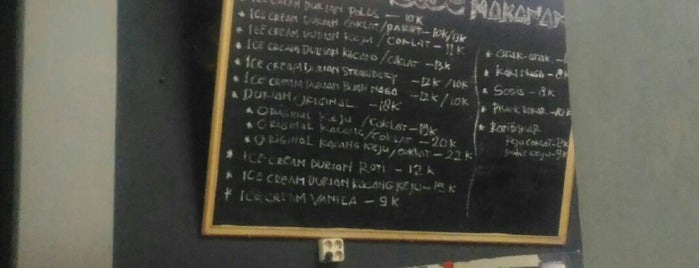 ICE CREAM DURIAN POLOS - 10K
* ICE CREAM DURIAN COKLAT/PARUT - 10K/13K
* ICE CREAM DURIAN KEJU/COKLAT - 11K
* ICE CREAM DURIAN KACANG/COKLAT - 13K
* ICE CREAM DURIAN STRAWBERY - 12K/10K
* ICE CREAM DURIAN BUAH NAGA - 12K/10K
* DURIAN ORIGINAL - 18K
* ORIGINAL KEJU/COKLAT - 19K
* ORIGINAL KACANG/COKLAT - 20K
* ORIGINAL KACANG KEJU/COKLAT - 22K
* ICE CREAM DURIAN ROTI - 12K
* ICE CREAM DURIAN KACANG KEJU - 15K
* ICE CREAM VANILA - 9K
MAKANAN
* OTAK-OTAK
* KAKI NAGA - 8K
* SOSIS - 8K
* PISANG - 10K
* ROTI BAKAR
KEJU COKLAT - 8K
KEJU - 9K